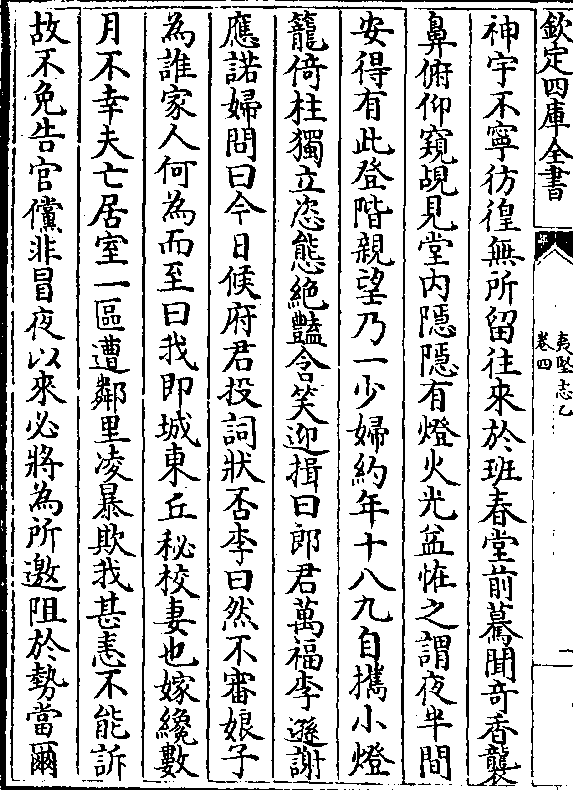 欽定四庫全書
夷堅志乙
卷四
二
神宇不寧彷徨無所留往來於班春堂前驀聞奇香襲
鼻俯仰窺覘見堂内隱隱有燈火光益怪之謂夜半間
安得有此登階親望乃一少婦約年十八九自攜小燈
籠倚柱獨立恣態絶豔含笑迎揖曰郎君萬福李遜謝
應諾婦問曰今日候府君投詞狀否李曰然不審娘子
為誰家人何為而至曰我即城東丘秘校妻也嫁纔數
月不幸夫亡居室一區遭鄰里凌暴欺我甚恚不能訴
故不免告官儻非冒夜以來必將為所邀阻於勢當爾